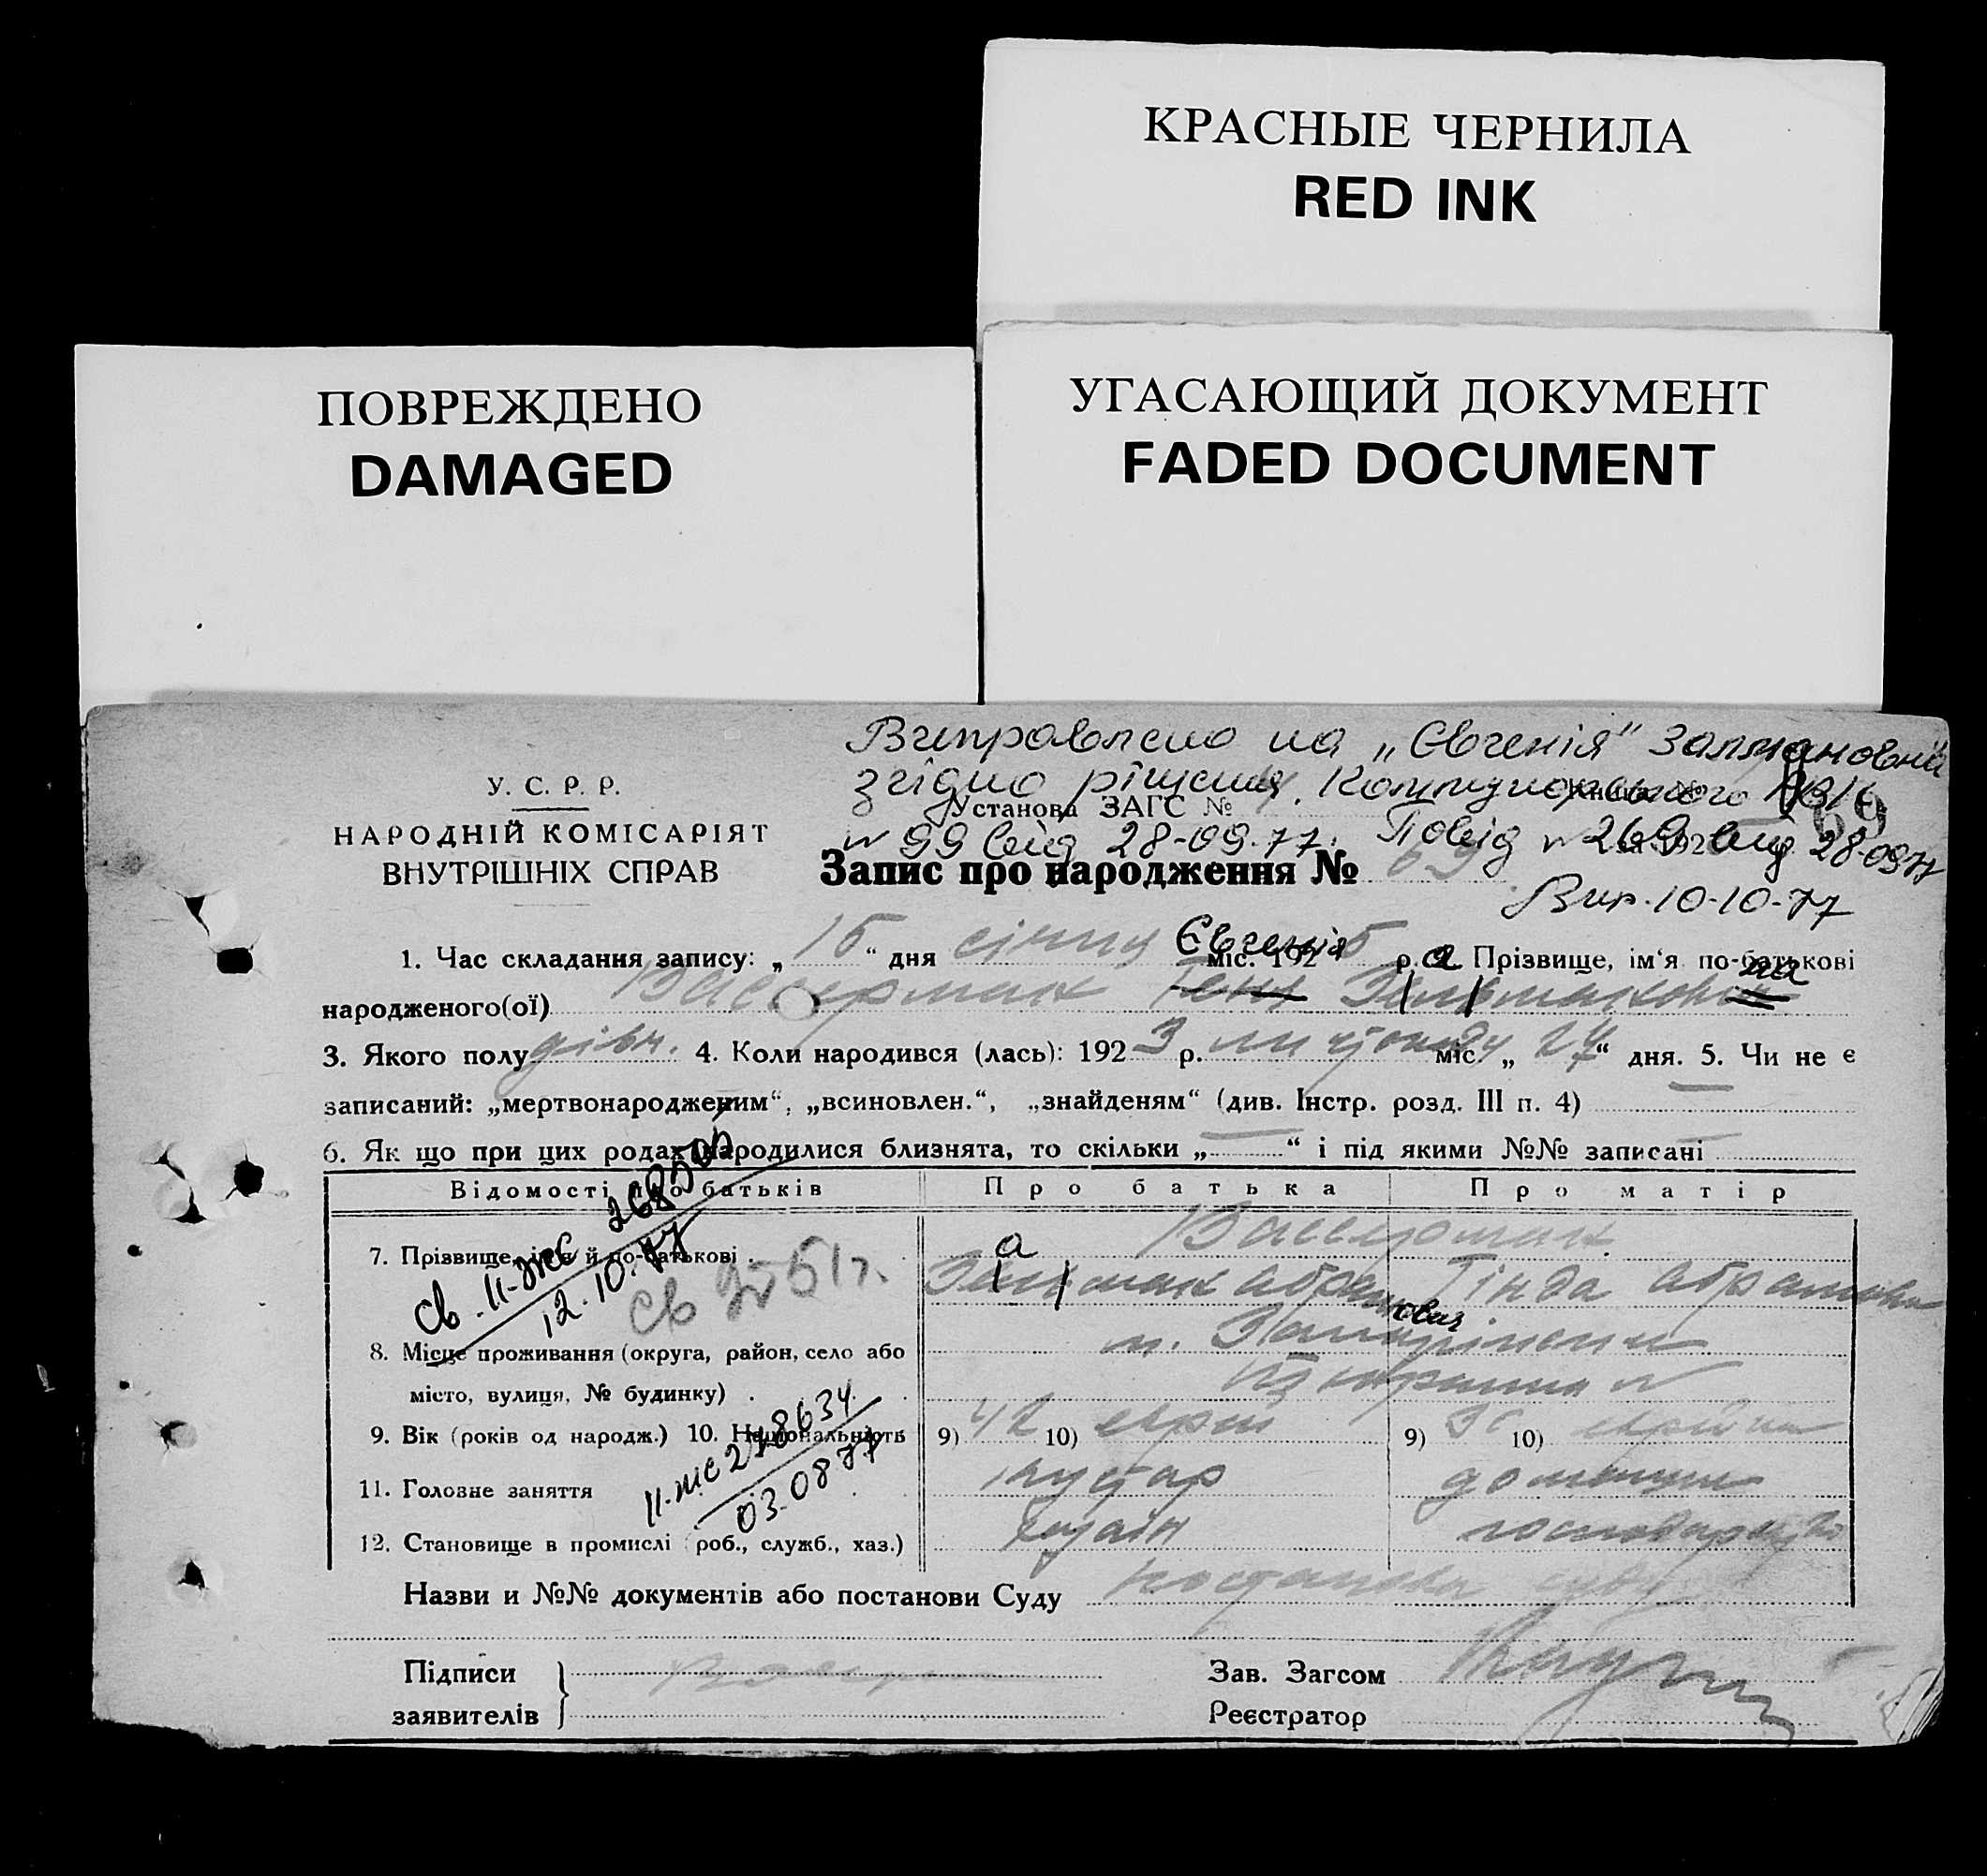 КРАСНЫЕ ЧЕРНИЛА
RED INK
ПОВРЕЖДЕНО
DAMAGED
УГАСАЮЩИЙ ДОКУМЕНТ
FADED DOCUMENT
Виправлено на „Євгенія" Залмановна
згідно рішення Коммунарського
№ 99 від 28-09-77. Повід № 269 від 28-09-77
Вир. 10-10-77
У. С. Р. Р.
НАРОДНІЙ КОМІСАРІЯТ
ВНУТРІШНІХ СПРАВ
Установа ЗАГС №
69
Запис про народження № 69
1. Час складання запису: „15“ дня січня міс. 1925 р. Прізвище, ім‘я по-батькові
Євгенія а на
народженого(ої) Вассерман Геня Зельмановна
3. Якого полу дівч. 4. Коли народився (лась): 1923 р. листопаду міс. „24“ дня. 5. Чи не є
записаний: „мертвонародженим“, „всиновлен.“, „знайденям“ (див. Інстр. розд. III п. 4)
6. Як що при цих родах народилися близнята, то скільки „ “ і під якими №№ записані
Відомості про батьків Про батька Про матір
7. Прізвище, ім‘я й по-батькові Вассерман
а
Зельман Абрамович Гінда Абрамовна
Св. ІІ-ЖС 268505
12.10.77
св 51 г.
8. Місце проживання (округа, район, село або
місто, вулиця, № будинку)
9. Вік (років од народж.) 10. Національність 9) 42 10) єврей 9) 10) єврейка
ІІ-ЖС 248634
03-08 77
11. Головне заняття кустар домашнє
12. Становище в промислі (роб., служб., хаз.) хазяїн господарство
Назви и №№ документів або постанови Суду постанова суду
Підписи
заявителів
Зав. Загсом
Реєстратор